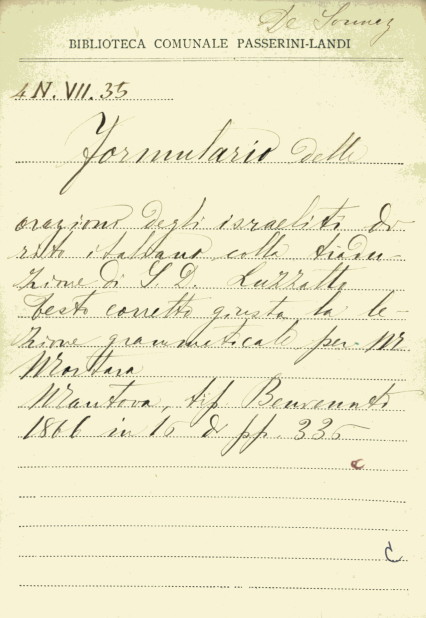 De
BIBLIOTECA COMUNALE PASSERINI-LANDI
4N.VII.35
Formulario delle
orazioni degli israeliti di
rito italiano colla tradu-
zione di S. D. Luzzatto
testo corretto giusta la le-
zione grammaticale per M
Mortara
Mantova, tip Benvenuti
1866 in 16 di pp. 335
C